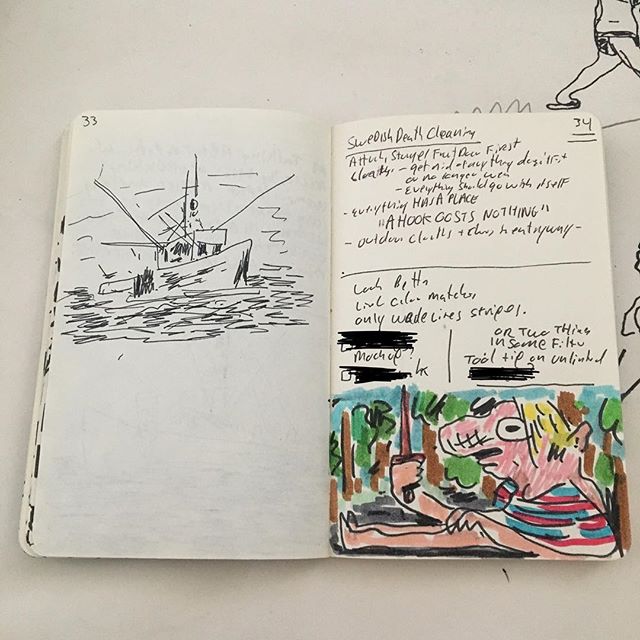 33
34
Swedish Death Cleaning
Attack Storage First Door First
Clothes - get rid of anything doesn't fit
or no longer worn
- Everything should go with itself
- everything HAS A PLACE
"A HOOK COSTS NOTHING"
- outdoor cloths + shoes in entryway -
Look Better
Link color matches
only wide lines stripes.
Mockup?
OR Two Things
In Same Filter
Tool tip on unlinked